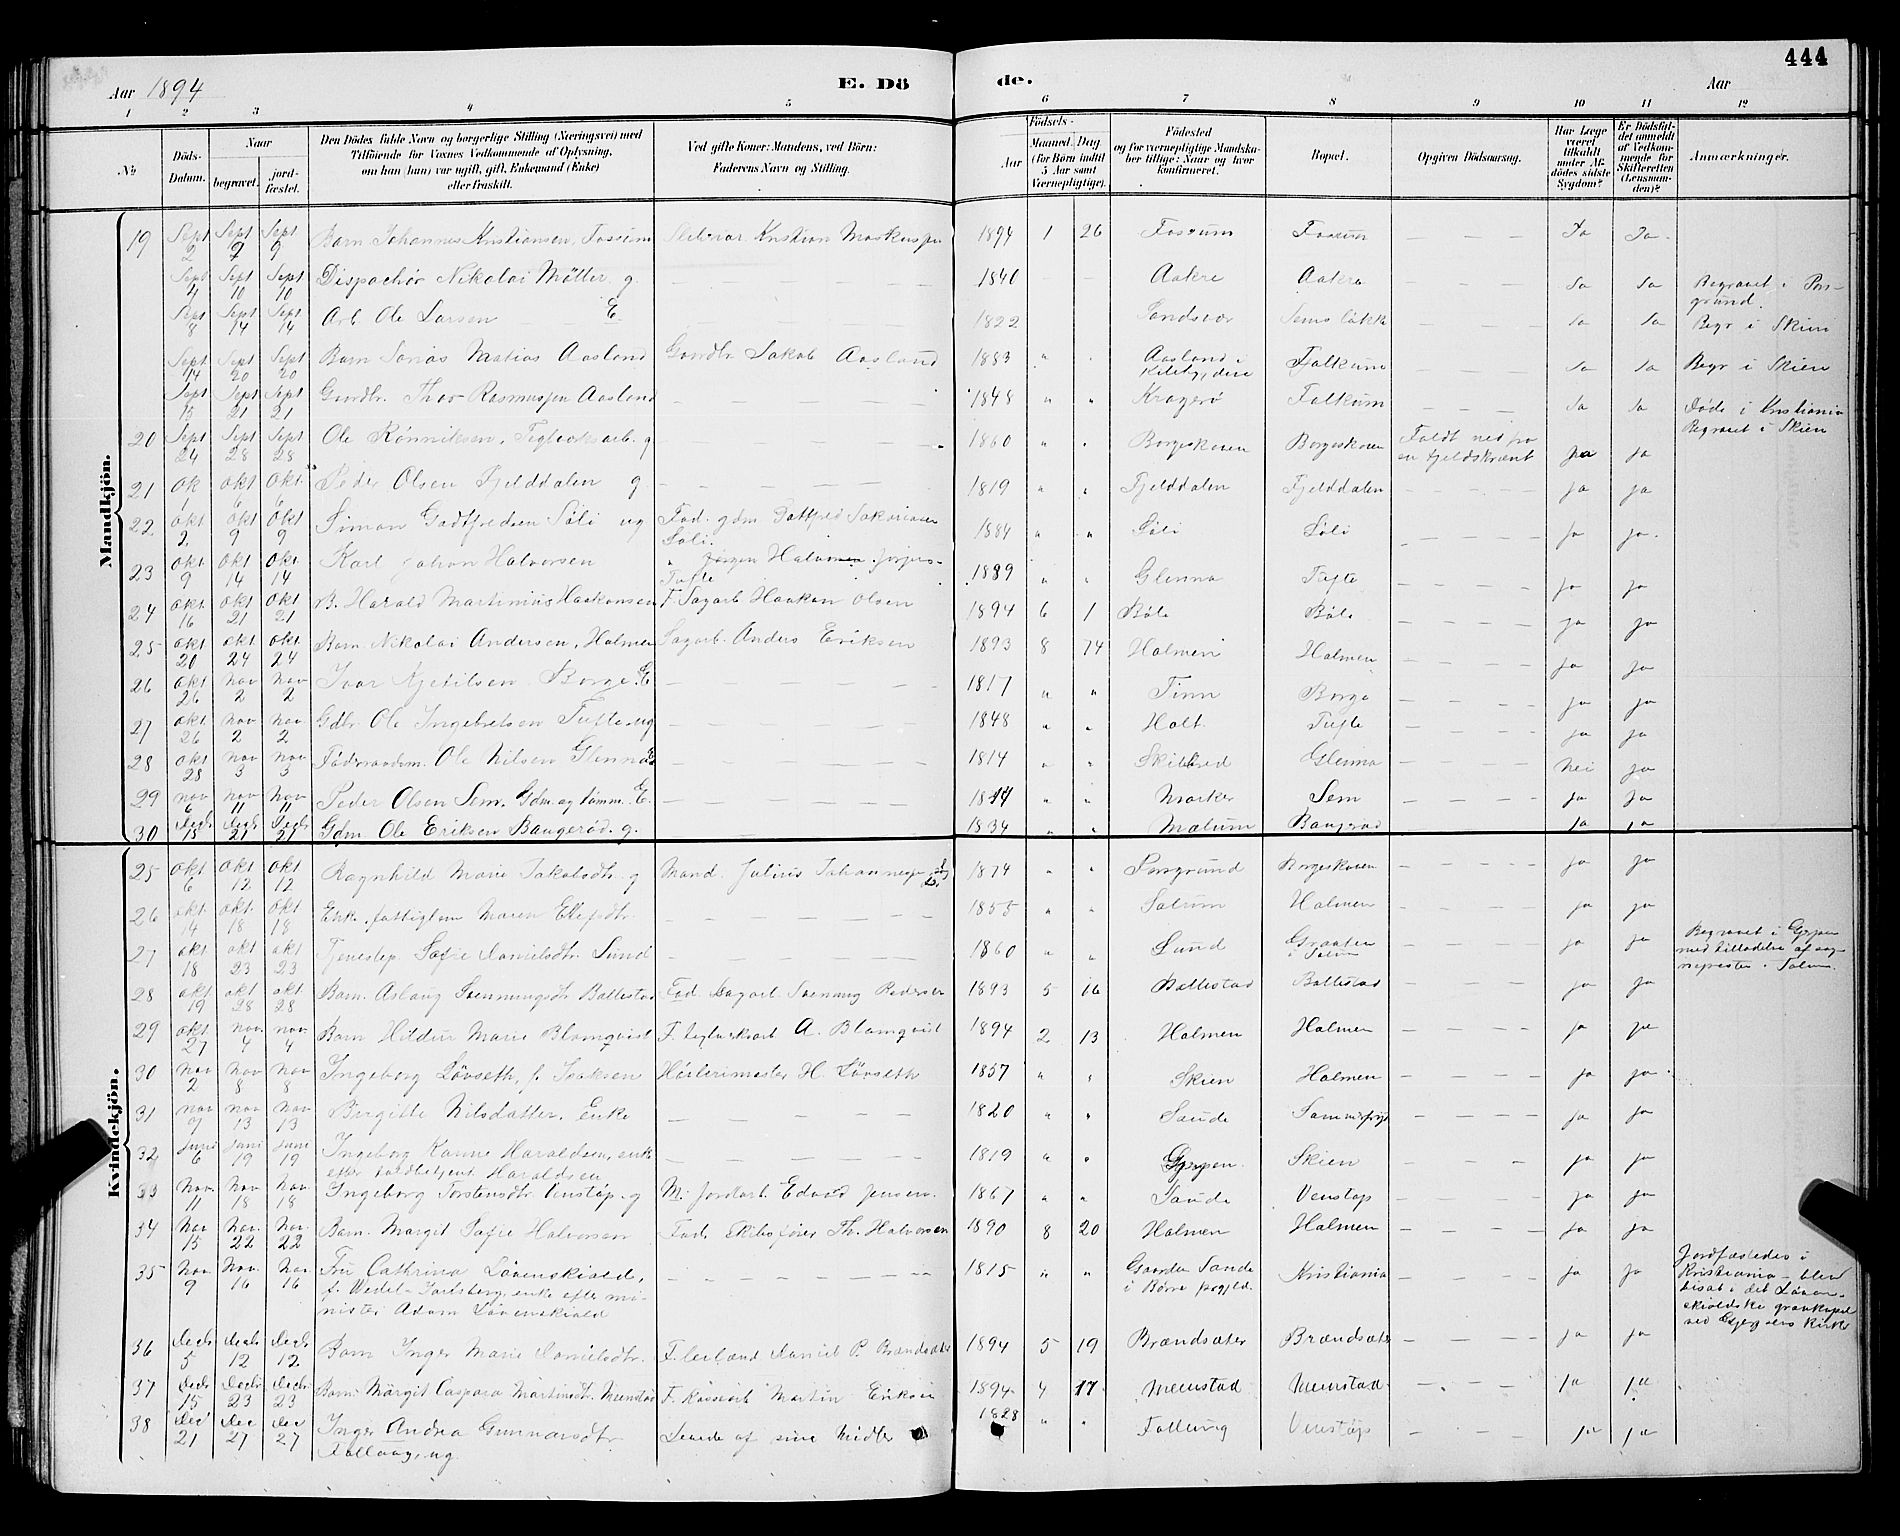 444
Aar 1894
E. Döde.
Aar
1 2 3 4 5 6 7 8 9 10 11 12
No.
Döds-Datum.
Naar
begravet.
jord-fæstet.
Den Dödes fulde Navn og borgerlige Stilling (Næringsvei) med
Tilföiende for Voxnes Vedkommende af Oplysning,
om han (hun) var ugift, gift, Enkemand (Enke)
eller fraskilt.
Ved gifte Koner: Mandens, ved Börn:
Faderens Navn og Stilling.
Födsels-
Aar
Maaned. Dag
(for Börn indtil
5 Aar samt
Værnepligtige).
Födested
og for værnepligtige Mandska-
ber tillige: Naar og hvor
konfirmeret.
Bopæl.
Opgiven Dödsaarsag.
Har Læge
været
tilkaldt
under Af-
dödes sidste
Sygdom?
Er Dödsfal-
det anmeldt
af Vedkom-
mende for
Skifteretten
(Lensman-
den)?
Anmærkninger.
Mandkjön.
19 Sept 2 Sept 9 Sept 9 Barn Johannes Kristiansen, Fossum Kristian 1894 1 26 Fossum Fossum Ja Ja
Sept 4 Sept 10 Sept 10 Dispachör Nikolai Möller g. 1840 Aakre Aakre Ja Ja Begravet i Pors-
grund.
Sept 8 Sept 14 Sept 14 Arb Ole Larsen E. 1822 Sandsvær Sems Ja Ja Begr i Skien
Sept 14 Sept 20 Sept 20 Barn Jonas Matias Aasland Gaardbr Jakob Aasland 1883 " " Aasland i Falkum Ja Ja Begr i Skien
Sept 15 Sept 21 Sept 21 Gaardbr. Thor Rasmussen Aasland 1848 " " Kragerö Falkum Ja Ja Döde i Kristiania
Begravet i Skien
20 Sept 24 Sept 28 Sept 28 Ole Rönniksen, Teglverksarb. g 1860 " " Borgeskoven Borgeskoven Faldt ned fra
en fjeldskrænt ja ja
21 Ok 1 Okt 6 Okt. 6 Peder Olsen Fjelddalen g. 1819 " " Fjelddalen Fjelddalen ja ja
22 Okt 2 Okt 9 Okt 9 Simon Gadtfredsen Söli ug Fad. gdm Gottfred Sakariasen
Söli. 1884 " " Söli Söli ja ja.
23 Okt 9 Okt 14 Okt 14 Karl Johan Halvorsen " Jörgen
Tufte 1889 " " Glenna Tufte ja ja
24 Okt 16 Okt 21 Okt 21 B. Harald Martinius Haakonsen F. Sagarb Haakon Olsen 1894 6 1 Böle Böle ja ja
25 Okt 20 Okt 24 Okt 24 Barn Nikolai Andersen, Holmen Sagarb. Anders Eriksen 1893 8 14 Holmen Holmen ja ja
26 Okt 26 Nov 2 Nov 2 Ivar Kjetilsen Borge E 1817 " " Tinn Borge ja ja
27 Okt 26 Nov 2 Nov 2 Gdbr Ole Ingebretsen Tufte ug 1848 " " Holt. Tufte ja ja
28 Okt 28 Nov 3 Nov 3 Föderaadsm. Ole Nilsen Glenna E 1814 " " Glenna Nei ja
29 Nov 6 Nov 11 Nov 11 Peder Olsen Sem. Gdm. og tömm. E. 1814 " " Marker Sem ja ja
30 Decb 15 Decb 21 Decb 21 Gdm Ole Eriksen Baugeröd. g. 1834 " " Mælum Baugeröd ja ja
Kvindekjön.
25 Okt 6 Okt 12 Okt 12 Ragnhild Marie Jakobsdtr. g Mand. Julius Johannesen 1874 " " Porsgrund Borgeskoven ja ja
26 Okt. 14 Okt. 18 Okt 18 Enke, fattiglem Maren Ellefsdtr 1855 " " Solum Holmen ja ja
27 Okt 18 Okt 23 Okt 23 Tjenestep. Sofie Danielsdtr. Sund 1860 " " Sund Graaten
i Solum ja ja Begravet i Gjerpen
med tilladelse af sog-
nepresten i Solum.
28 Okt 19 Okt 28 Okt 28 Barn. Aslaug Svenningsdtr Ballestad Fad Sagarb. Svenning Pedersen 1893 5 16 Ballestad Ballestad ja ja
29 Okt 27 Nov 4 Nov 4 Barn Hildur Marie Blomqvist F. A. Blomqvist 1894 2 13 Holmen Holmen ja ja
30 Nov 2 Nov 8 Nov 8 Ingeborg Lövseth, f. Isaksen Hösleri­mester H. Lövseth 1857 " " Skien Holmen ja ja
31 Nov 9 Nov 13 Nov 13 Birgitte Nilsdatter. Enke 1820 " " Saude ja ja
32 Juni 6 Juni 19 Juni 19 Ingeborg Karine Haraldsen, enke
efter toldbetjent Haraldsen 1819 " " Gjerpen Skien ja ja
33 Nov. 11 Nov 18 Nov. 18 Ingeborg Torstensdtr Venstöp. g M. jordarb. Edvard Jensen. 1867 " " Saude Venstöp ja ja
34 Nov 15 Nov. 22 Nov. 22 Barn. Margit Sofie Halvorsen Fad. Skibsförer Th. Halvorsen 1890 8 20 Holmen Holmen ja ja
35 Nov. 9 Nov. 16 Nov. 16 Fru Cathrina Lövenskiold,
f. Wedel-Jarlsberg, enke efter mi-
nister Adam Lövenskiold 1815 " " Gaarden Sande
i Borre prgjld. Kristiania ja ja Jordfæstedes i
Kristiania - blev
bisat i det Löven-
skioldske gravkapel
ved Gjerpens kirke
36 Decb 5 Decb 12 Decb 12 Barn Inger Marie Danielsdtr. F. Leilænd. Daniel P. Brændsæter 1894 5 19 Brændsæter Brændsæter ja ja
37 Decb 15 Decb 23 Decb 23 Barn Margit Caspara Martinsdtr. Menstad F. Martin Eriksen 1894 4 17 Menstad Menstad ja ja
38 Dec 21 Dec 27 Dec 27 Inger Andrea Gunnarsdtr
Follaug, ug. Levede af sine Midler 1828 " " Venstöp ja ja